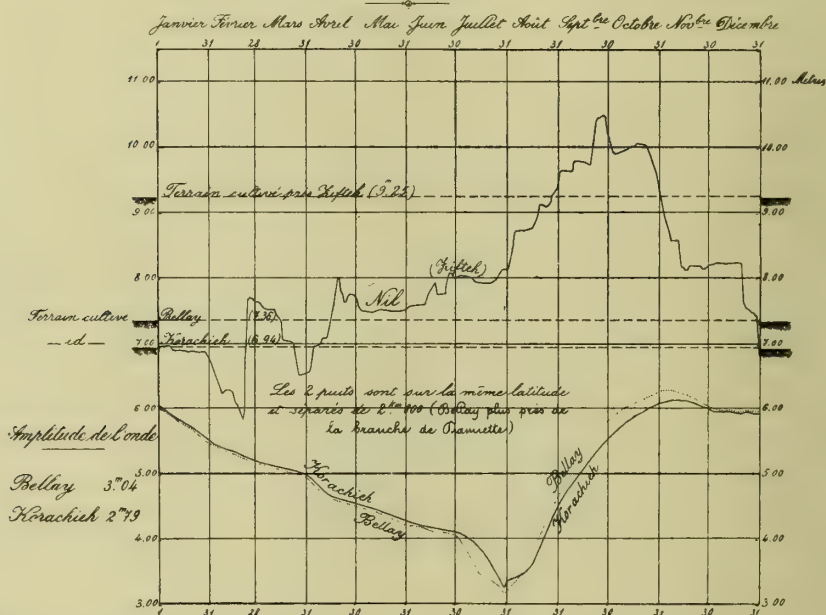 Janvier Février Mars Avril Mai Juin Juillet Août Sept.bre Octobre Nov.bre Décembre
1 31 28 31 30 31 30 31 31 30 31 30 31
11.00 11.00 Mètres
10.00 10.00
Terrain cultivé près Zifteh (9.m25)
9.00 9.00
(Zifteh)
8.00 8.00
Nil
Terrain cultivé Bellay (7.36)
— id — Korachieh (6.94)
7.00 7.00
Les 2 puits sont sur la même latitude
et séparés de 2km800 (Bellay plus près de
la branche de Damiette)
6.00 6.00
Amplitude de l'onde
Bellay 3m04
Korachieh 2m79
5.00 5.00
Korachieh
Bellay
Bellay
Korachieh
4.00 4.00
3.00 3.00
1 31 28 31 30 31 30 31 31 30 31 30 31